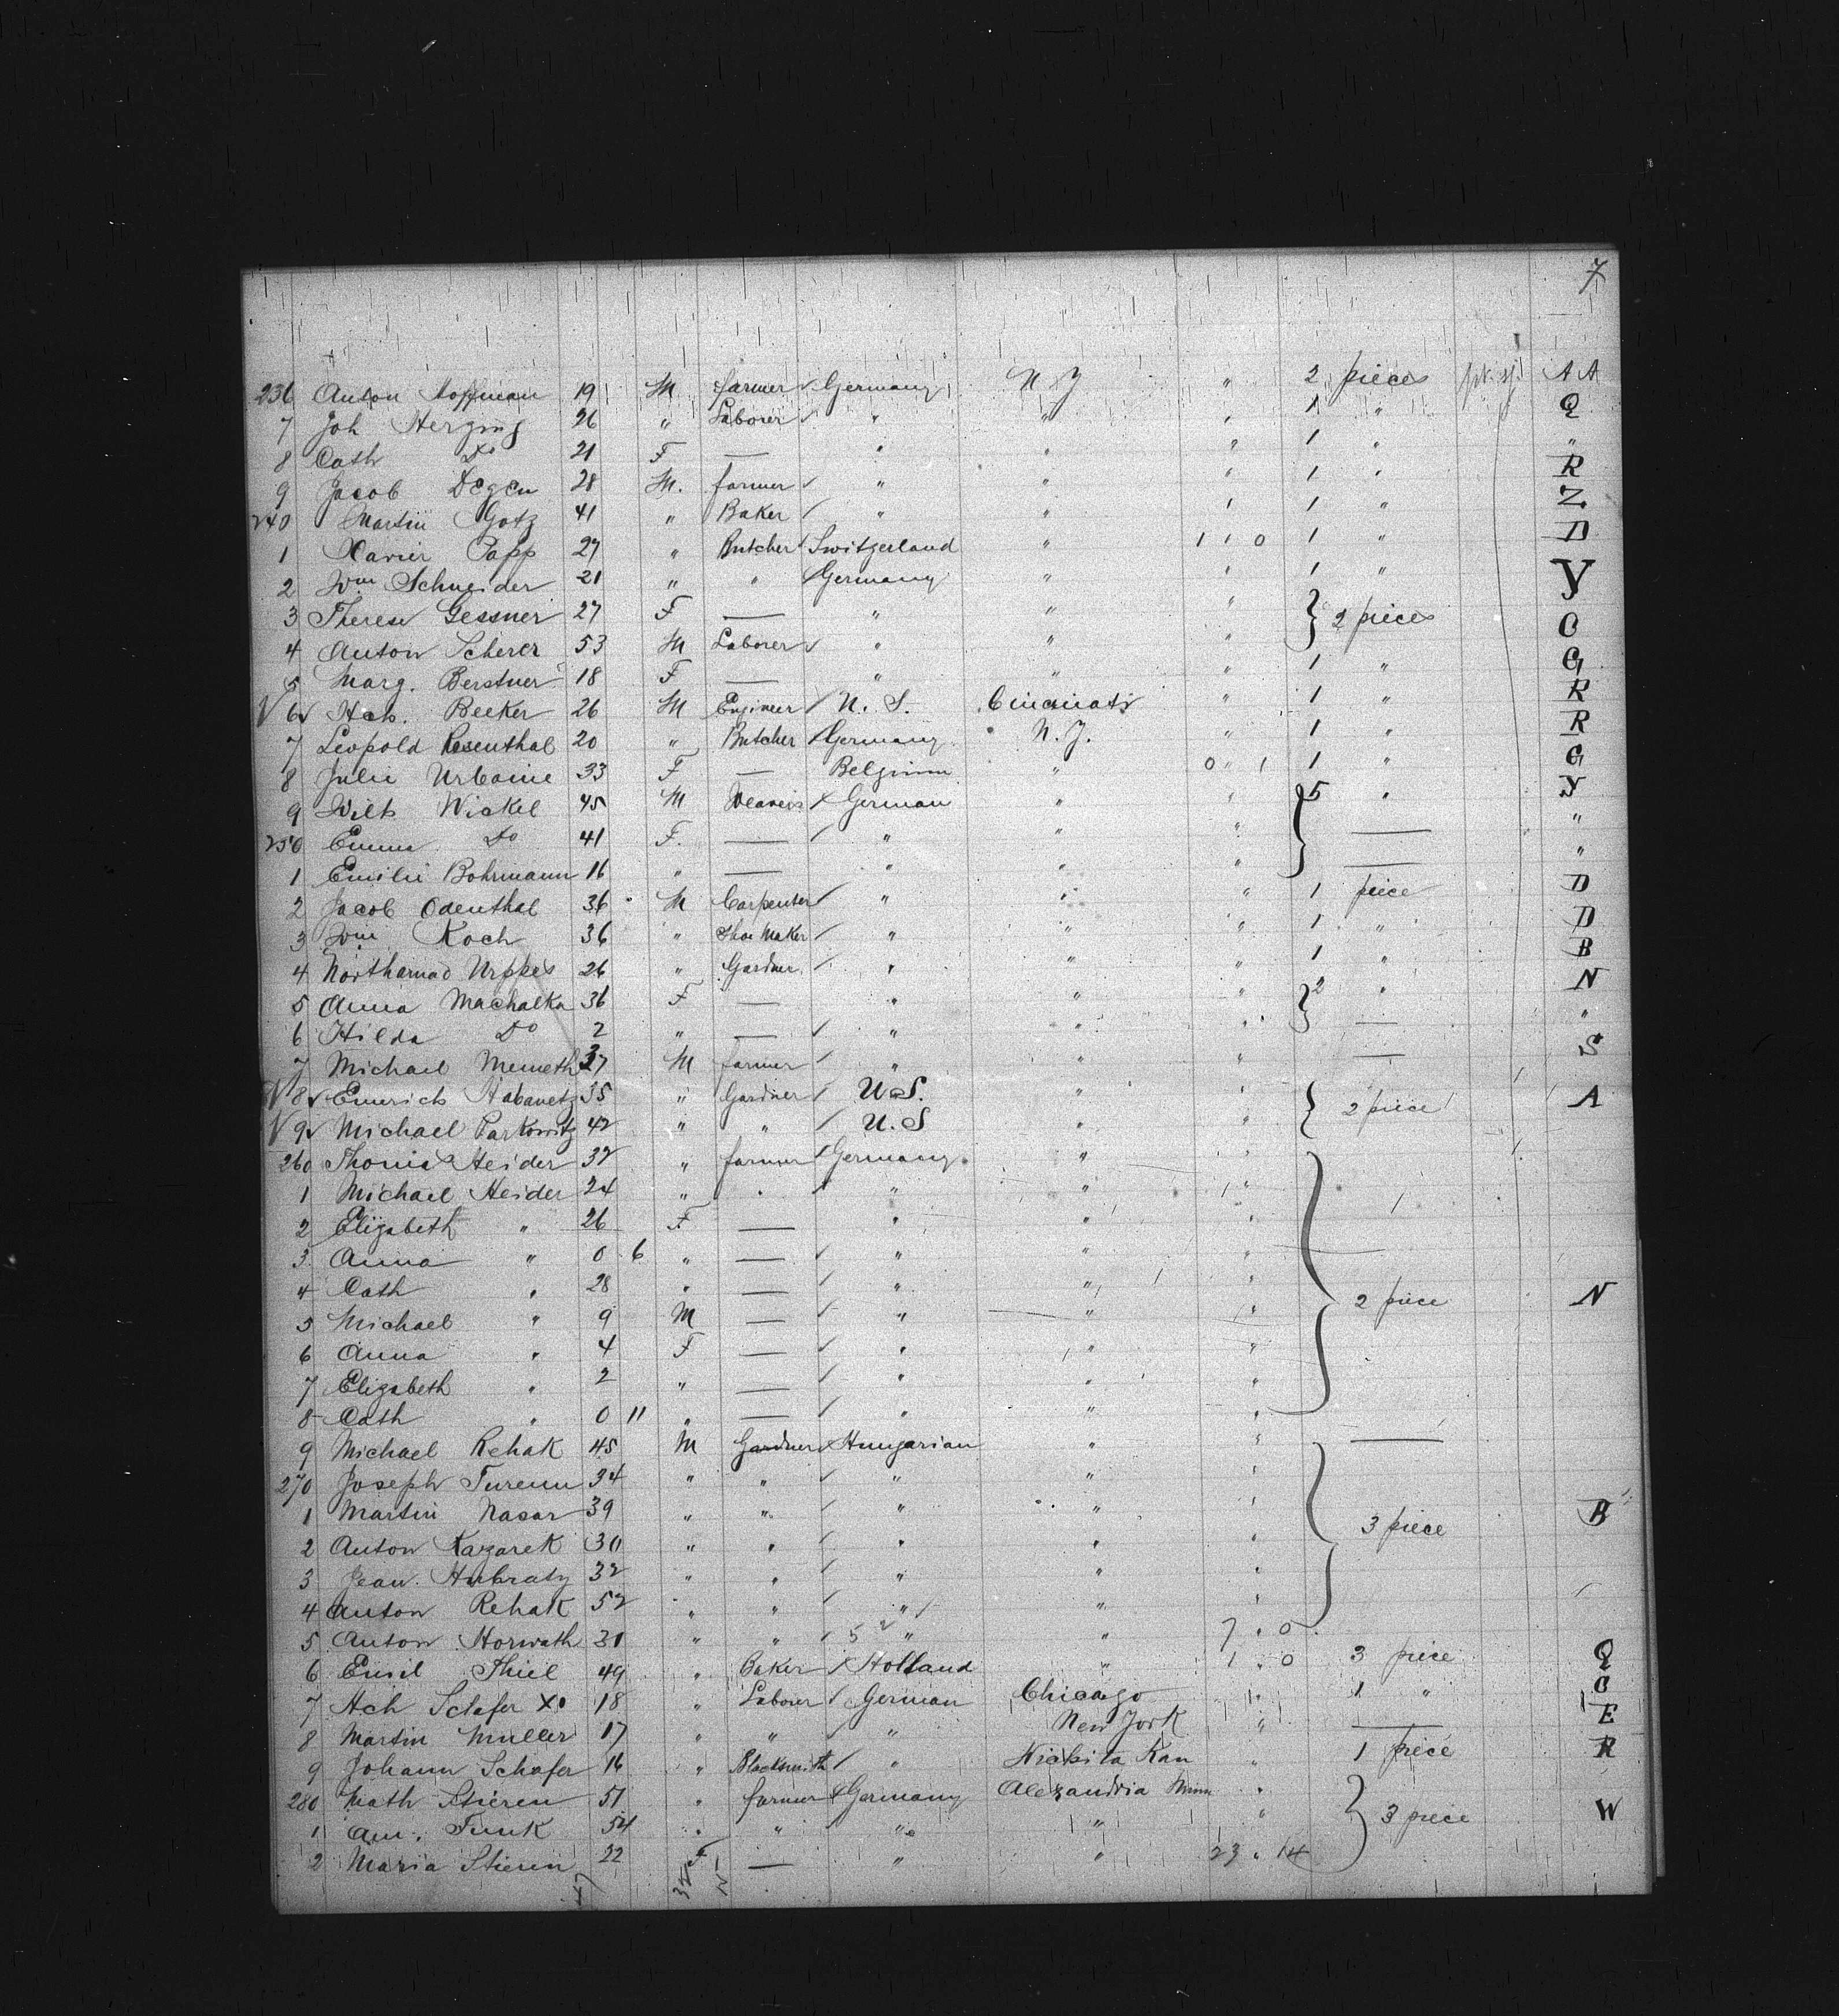 7
236 Anton Hoffman 19 M farmer ✓ Germany N Y " 2 pieces AA
7 Joh Herzing 26 " Laborer ✓ " " " 1 " Q
8 Cath Do 21 F — " " " 1 " "
9 Jacob Degen 28 M. farmer ✓ " " " 1 " R
240 Martin Gotz 41 " Baker ✓ " " " 1 " Z
1 Xavier Papp 27 " Butcher ✓ Switzerland " 1 " 0 1 " D
2 Wm Schneider 21 " " ✓ Germany " " 1 " Y
3 Therese Gessner 27 F — " " " } 2 pieces
4 Anton Scherer 53 M Laborer ✓ " " " C
5 Marg. Berstner 18 F — " " " 1 " G
✓ 6 ✓ Hch. Becker 26 M Engineer ✓ U. S. Cincinati " 1 " R
7 Leopold Rosenthal 20 " Butcher ✓ Germany N. Y. " 1 " R
8 Julie Urbaine 33 F — Belgium " 0 " 1 1 " G
9 Wilh Wickel 45 M Weavers ✓ German " " } 5 " Y
250 Emma Do 41 F. — ✓ " " " — "
1 Emilie Bohrmann 16 " — " " " — "
2 Jacob Odenthal 36 M Carpenter ✓ " " " 1 piece D
3 Wm Koch 36 " Shoe Maker ✓ " " " 1 " D
4 Urppes 26 " Gardner ✓ " " " 1 " B
5 Anna Machalka 36 F — " " " } 2 " N
6 Hilda Do 2 " — ✓ " " " — "
7 Michael Memeth 37 M farmer ✓ " " " — S
✓ 8 ✓ Emerich Habanetz 35 " Gardner ✓ U.S. " " } 2 piece A
✓ 9 ✓ Michael Parkowitz 42 " " ✓ U. S " "
260 Heider 32 " farmer ✓ Germany " "
1 Michael Heider 24 " " ✓ " " "
2 Elizabeth " 26 F — " " "
3 Anna " 0 6 " — ✓ " " "
4 Cath " 28 " — ✓ " " " } 2 piece N
5 Michael " 9 M — ✓ " " "
6 Anna " 4 F — ✓ " " "
7 Elizabeth " 2 " — ✓ " " "
8 Cath " 0 11 " — ✓ " " "
9 Michael Rehak 45 M Gardner ✓ Hungarian " " —
270 Joseph Turenn 34 " " ✓ " " "
1 Martin Nasar 39 " " ✓ " " " } 3 piece B
2 Anton Kazarek 30 " " ✓ " " "
3 Jean. Hrbraty 32 " " ✓ " " "
4 Anton Rehak 52 " " ✓ " " "
5 Anton Horwath 31 " " ✓ 52 " " 7 " 0
6 Emil Thiel 49 " Baker ✓ Holland " 1 " 0 3 piece Q
7 Hch Schefer X 18 " Laborer ✓ German Chicago " 1 " C
8 Martin Muller 17 " " ✓ " New York " — E
9 Johann Schafer 16 " Blacksmith ✓ " Wichita Kan " 1 piece R
280 Math Stieren 51 " farmer ✓ Germany Alexandria Minn " } 3 piece W
1 Funk 54 " " " " "
2 Maria Stieren 22 F — " " 23 " 14
47